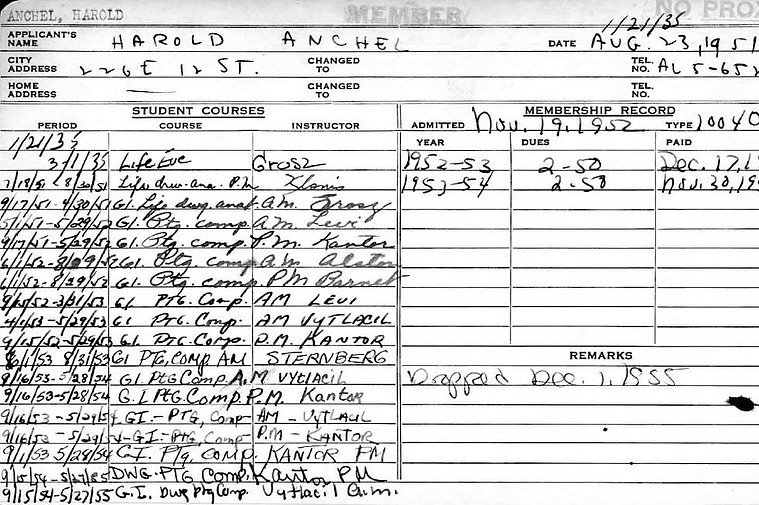 ANCHEL, HAROLD MEMBER NO PROX
1/21/35
APPLICANT'S NAME HAROLD ANCHEL DATE AUG. 23, 1951
CITY ADDRESS 226 E 12 ST. CHANGED TO TEL. NO. AL 5-652
HOME ADDRESS — CHANGED TO TEL. NO.
STUDENT COURSES MEMBERSHIP RECORD
PERIOD COURSE INSTRUCTOR ADMITTED Nov. 19, 1952 TYPE 10040
YEAR DUES PAID
1/21/35
3/1/35 Life Eve Grosz 1952-53 2-50 Dec. 17, 1
7/18/51 - 8/30/51 Life drw. ana. P.M. 1953-54 2.50 Nov. 30, 19
9/17/51 - 4/30/51 G.I. Life dwg. anat. A.M. Grosz
5/1/51 - 5/29/52 G.I. Ptg. comp. A.M. Levi
9/17/51 - 5/29/52 G.I. Ptg. comp. P.M. Kantor
6/1/52 - 8/29/52 G.I. Ptg. comp. A.M. Alston
6/1/52 - 8/29/52 G.I. Ptg. comp. P.M. Barnet
9/15/52 - 3/31/53 GI PTG. Comp. AM LEVI
4/1/53 - 5/29/53 GI PTG. Comp. AM VYTLACIL
9/15/52 - 5/29/53 G.I. PTG. Comp. P.M. KANTOR
6/1/53 8/31/53 GI PTG, COMP AM STERNBERG
REMARKS
9/16/53 - 5/28/54 G.I. PtG Comp. A.M VYTLACIL Dropped Dec. 1, 1955
9/16/53 - 5/28/54 G.I. PtG Comp. P.M. Kantor
9/16/53 - 5/29/54 G.I. - PTG, Comp AM - VYTLACIL
9/16/53 - 5/29/54 - G.I. - PTG, Comp P.M - KANTOR
9/1/53 5/28/54 G.I. Ptg, COMP. KANTOR PM
9/15/54 - 5/27/55 DWG. PTG Comp. Kantor PM
9/15/54 - 5/27/55 G.I. Dwg Ptg Comp. Vytlacil a.m.